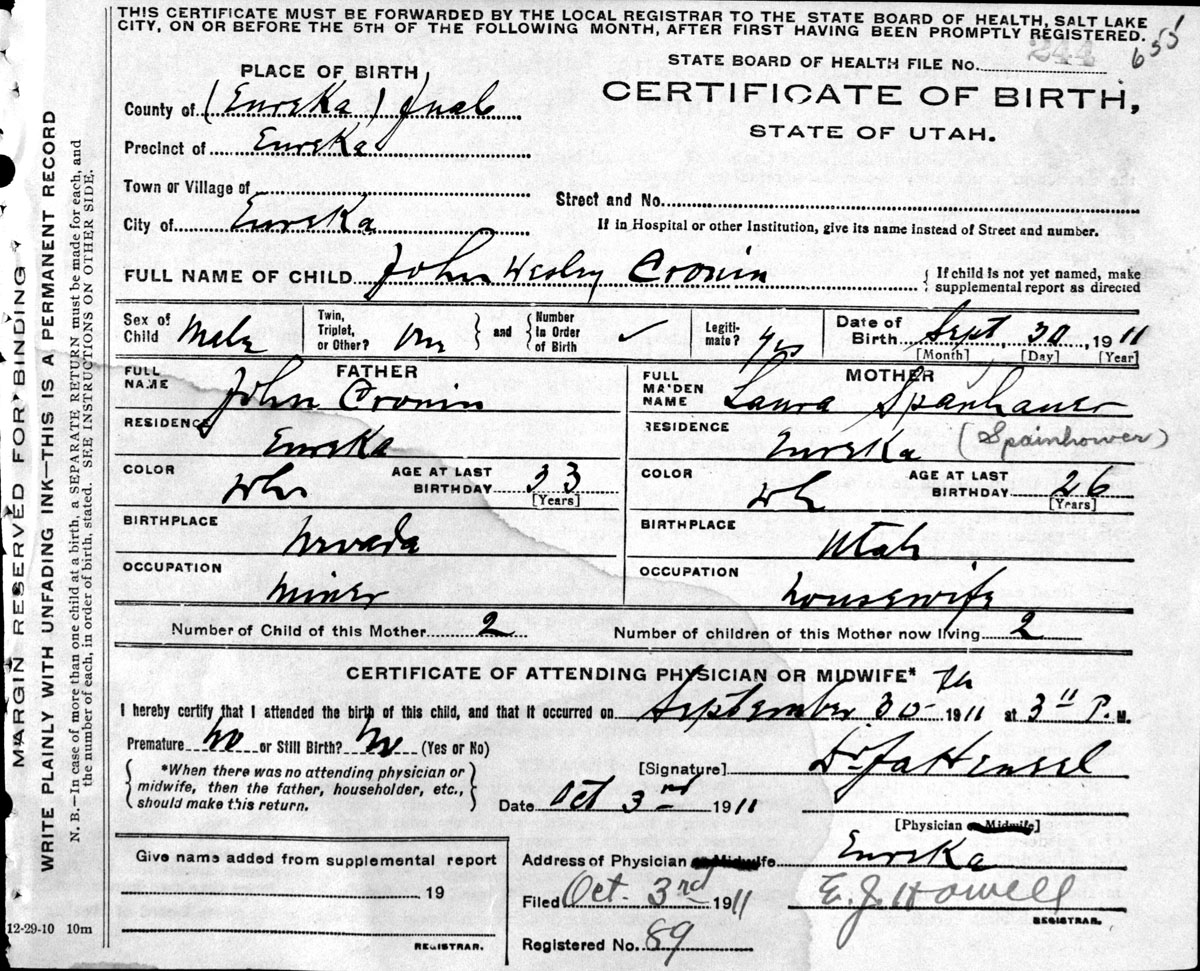 THIS CERTIFICATE MUST BE FORWARDED BY THE LOCAL REGISTRAR TO THE STATE BOARD OF HEALTH, SALT LAKE
CITY, ON OR BEFORE THE 5TH OF THE FOLLOWING MONTH, AFTER FIRST HAVING BEEN PROMPTLY REGISTERED.
655
STATE BOARD OF HEALTH FILE No. 244
CERTIFICATE OF BIRTH,
STATE OF UTAH.
PLACE OF BIRTH
County of (Eureka) Juab
Precinct of Eureka
Town or Village of
City of Eureka
Street and No.
If in Hospital or other Institution, give its name instead of Street and number.
FULL NAME OF CHILD John Wesley Cronin
{ If child is not yet named, make
supplemental report as directed
Sex of
Child Male
Twin,
Triplet,
or Other? One } and { Number
in Order
of Birth ✓
Legiti-
mate? yes
Date of
Birth Sept, 30, 1911
[Month] [Day] [Year]
FATHER
FULL
NAME John Cronin
RESIDENCE Eureka
COLOR Wh
AGE AT LAST
BIRTHDAY 33
[Years]
BIRTHPLACE Nevada
OCCUPATION Miner
MOTHER
FULL
MAIDEN
NAME Laura Spanhauer
RESIDENCE Eureka (Spainhower)
COLOR Wh
AGE AT LAST
BIRTHDAY 26
[Years]
BIRTHPLACE Utah
OCCUPATION Housewife
Number of Child of this Mother 2
Number of children of this Mother now living 2
CERTIFICATE OF ATTENDING PHYSICIAN OR MIDWIFE*
I hereby certify that I attended the birth of this child, and that it occurred on September 30th 1911 at 3 P. M.
Premature No or Still Birth? No (Yes or No)
{ *When there was no attending physician or
midwife, then the father, householder, etc.,
should make this return. }
[Signature] Dr Hensel
Date Oct 3rd 1911
[Physician or Midwife]
Address of Physician or Midwife Eureka
Give name added from supplemental report
19
REGISTRAR.
Filed Oct. 3rd 1911 E. J. Howell
REGISTRAR.
Registered No. 89
MARGIN RESERVED FOR BINDING
WRITE PLAINLY WITH UNFADING INK—THIS IS A PERMANENT RECORD
N. B.—In case of more than one child at a birth, a SEPARATE RETURN must be made for each, and
the number of each, in order of birth, stated. SEE INSTRUCTIONS ON OTHER SIDE.
12-29-10 10m